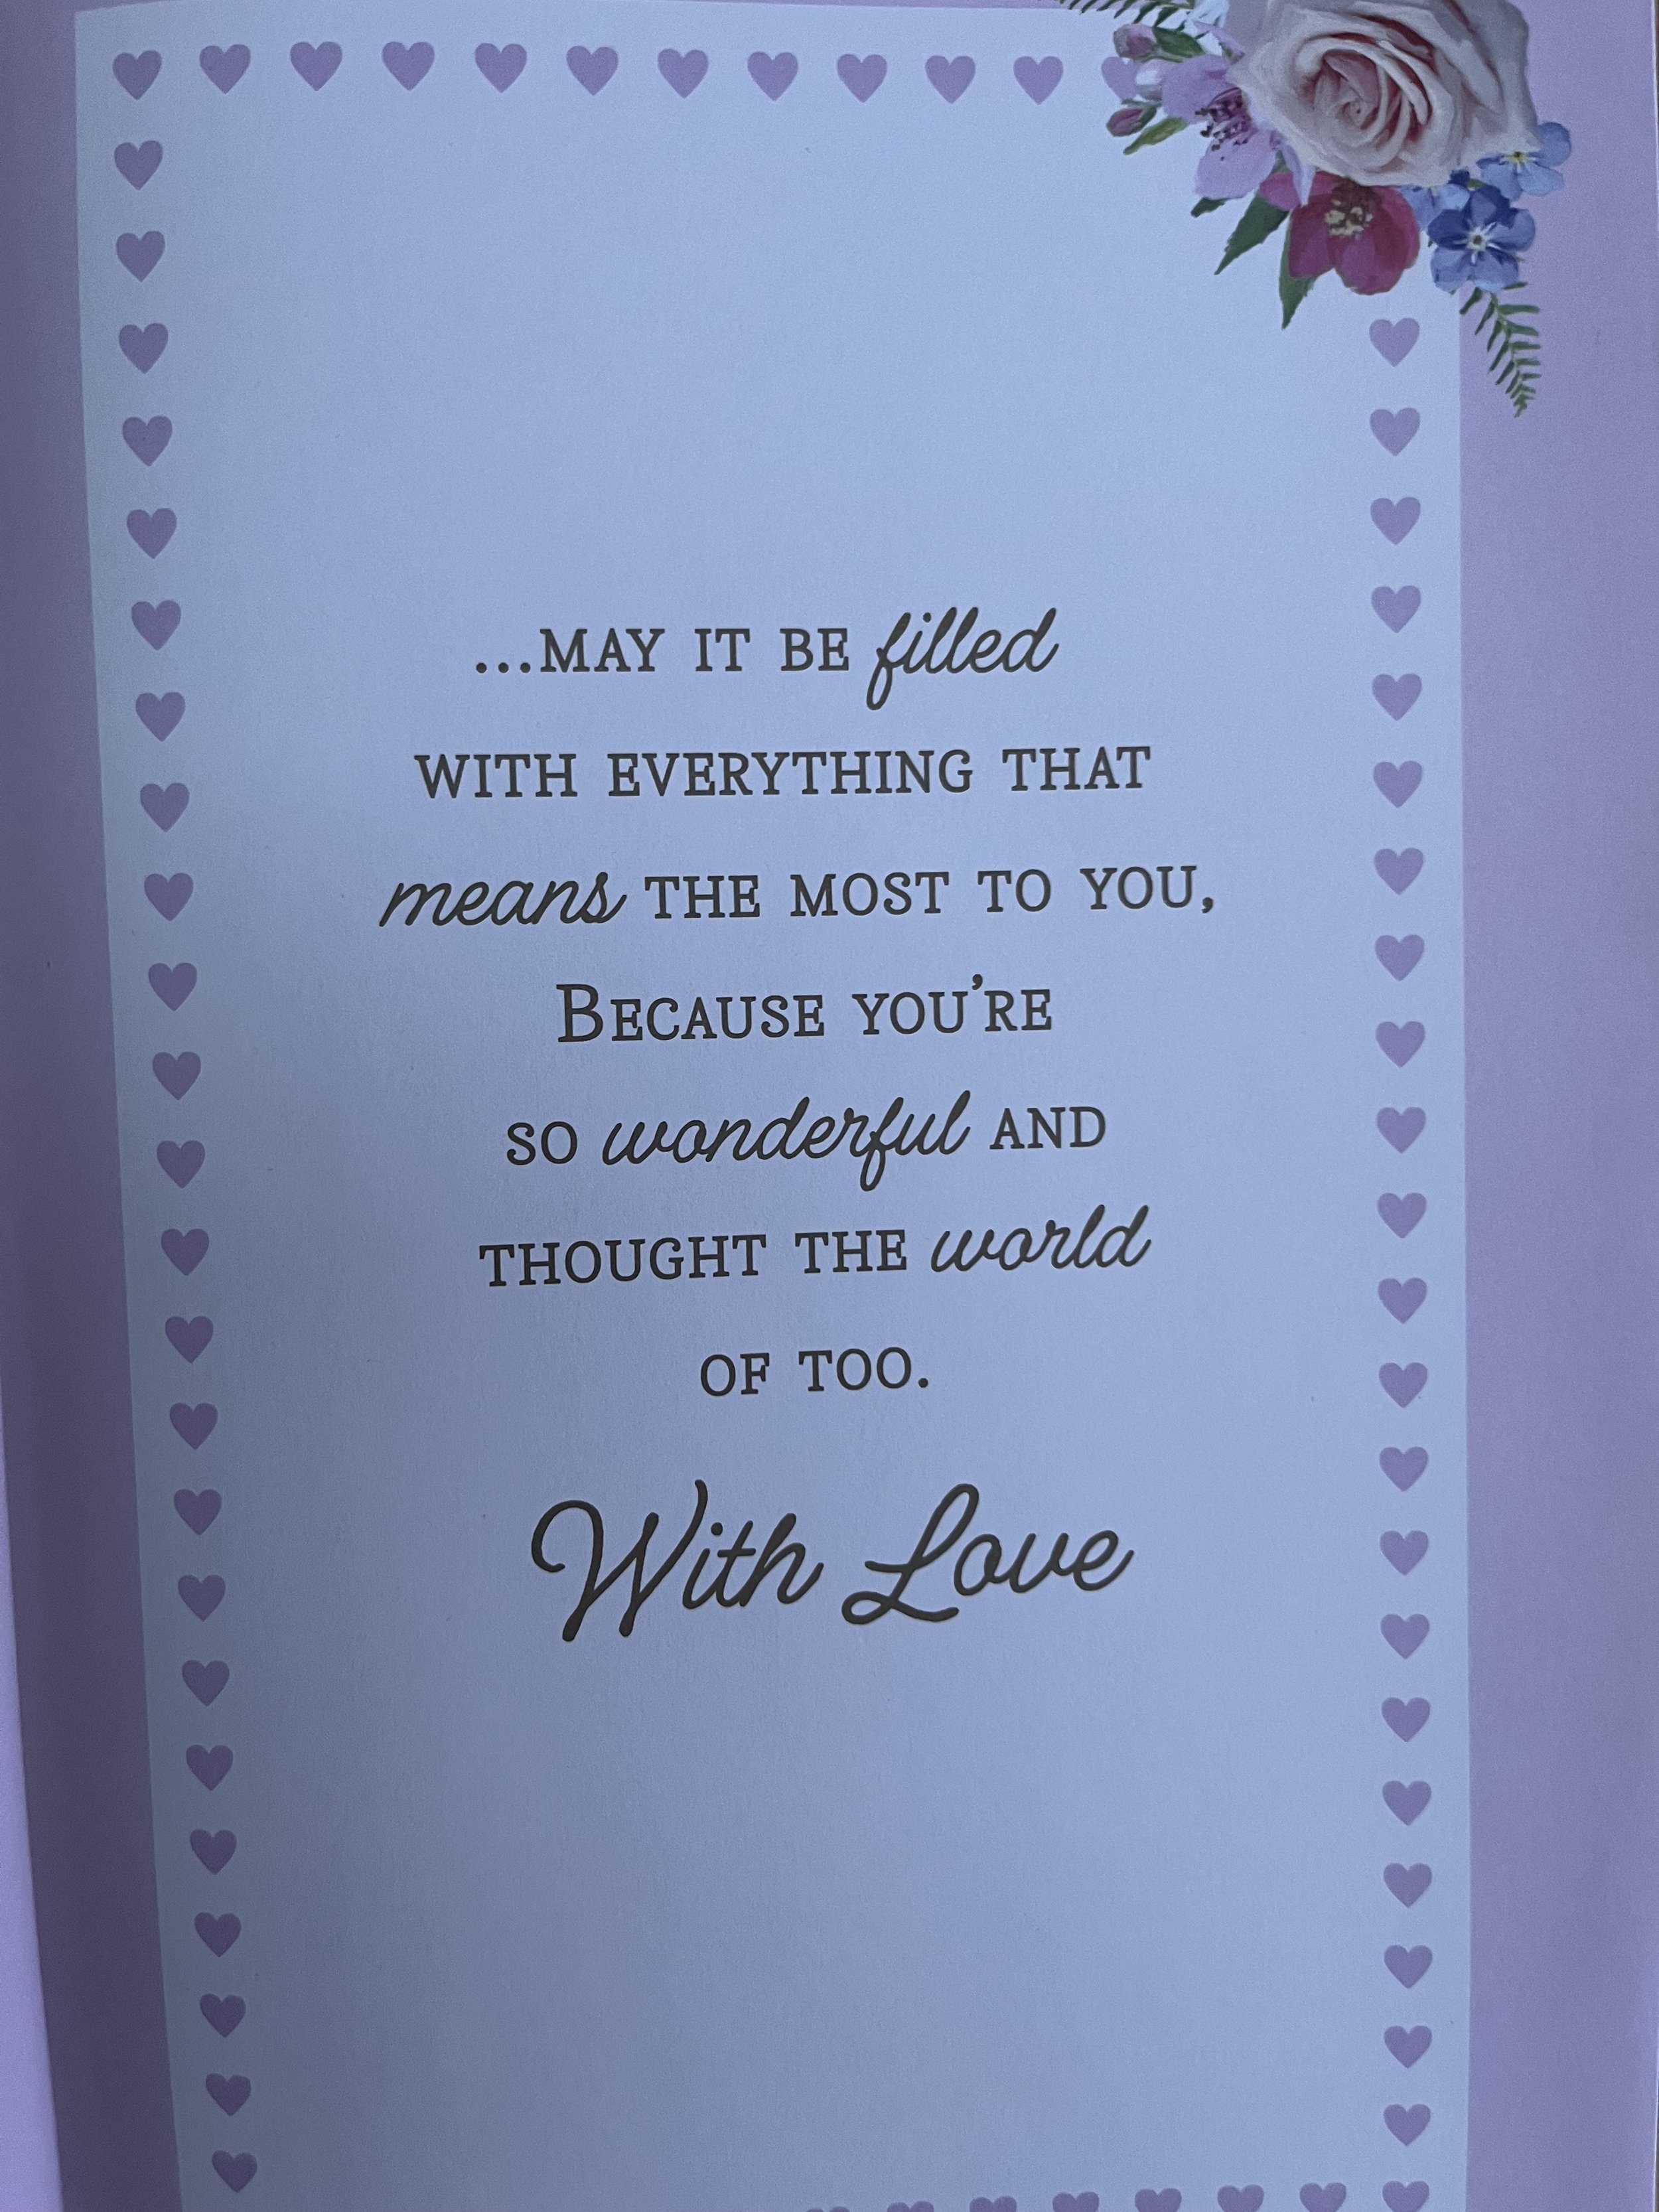 ...MAY IT BE filled
WITH EVERYTHING THAT
means THE MOST TO YOU,
BECAUSE YOU'RE
SO wonderful AND
THOUGHT THE world
OF TOO.
With Love